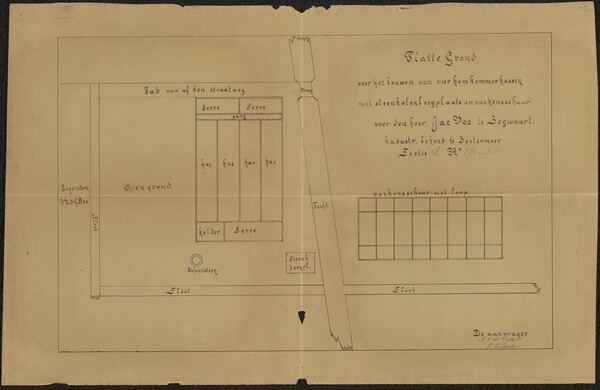 Platte Grond
voor het bouwen van vier komkommerkassen
met steenkolenbergplaats en varkensschuur
voor den heer Jac Vos te Zegwaart.
kadastr. bekend te Zoetermeer
Sectie No
Pad van af den straatweg
Brug
Serre Serre
gang
kas kas kas kas
kelder Serre
Open grond.
Eigendom
Sloot
Tocht
varkensschuur met loop
Steenk
bergpl.
Sloot Sloot
De aanvrager